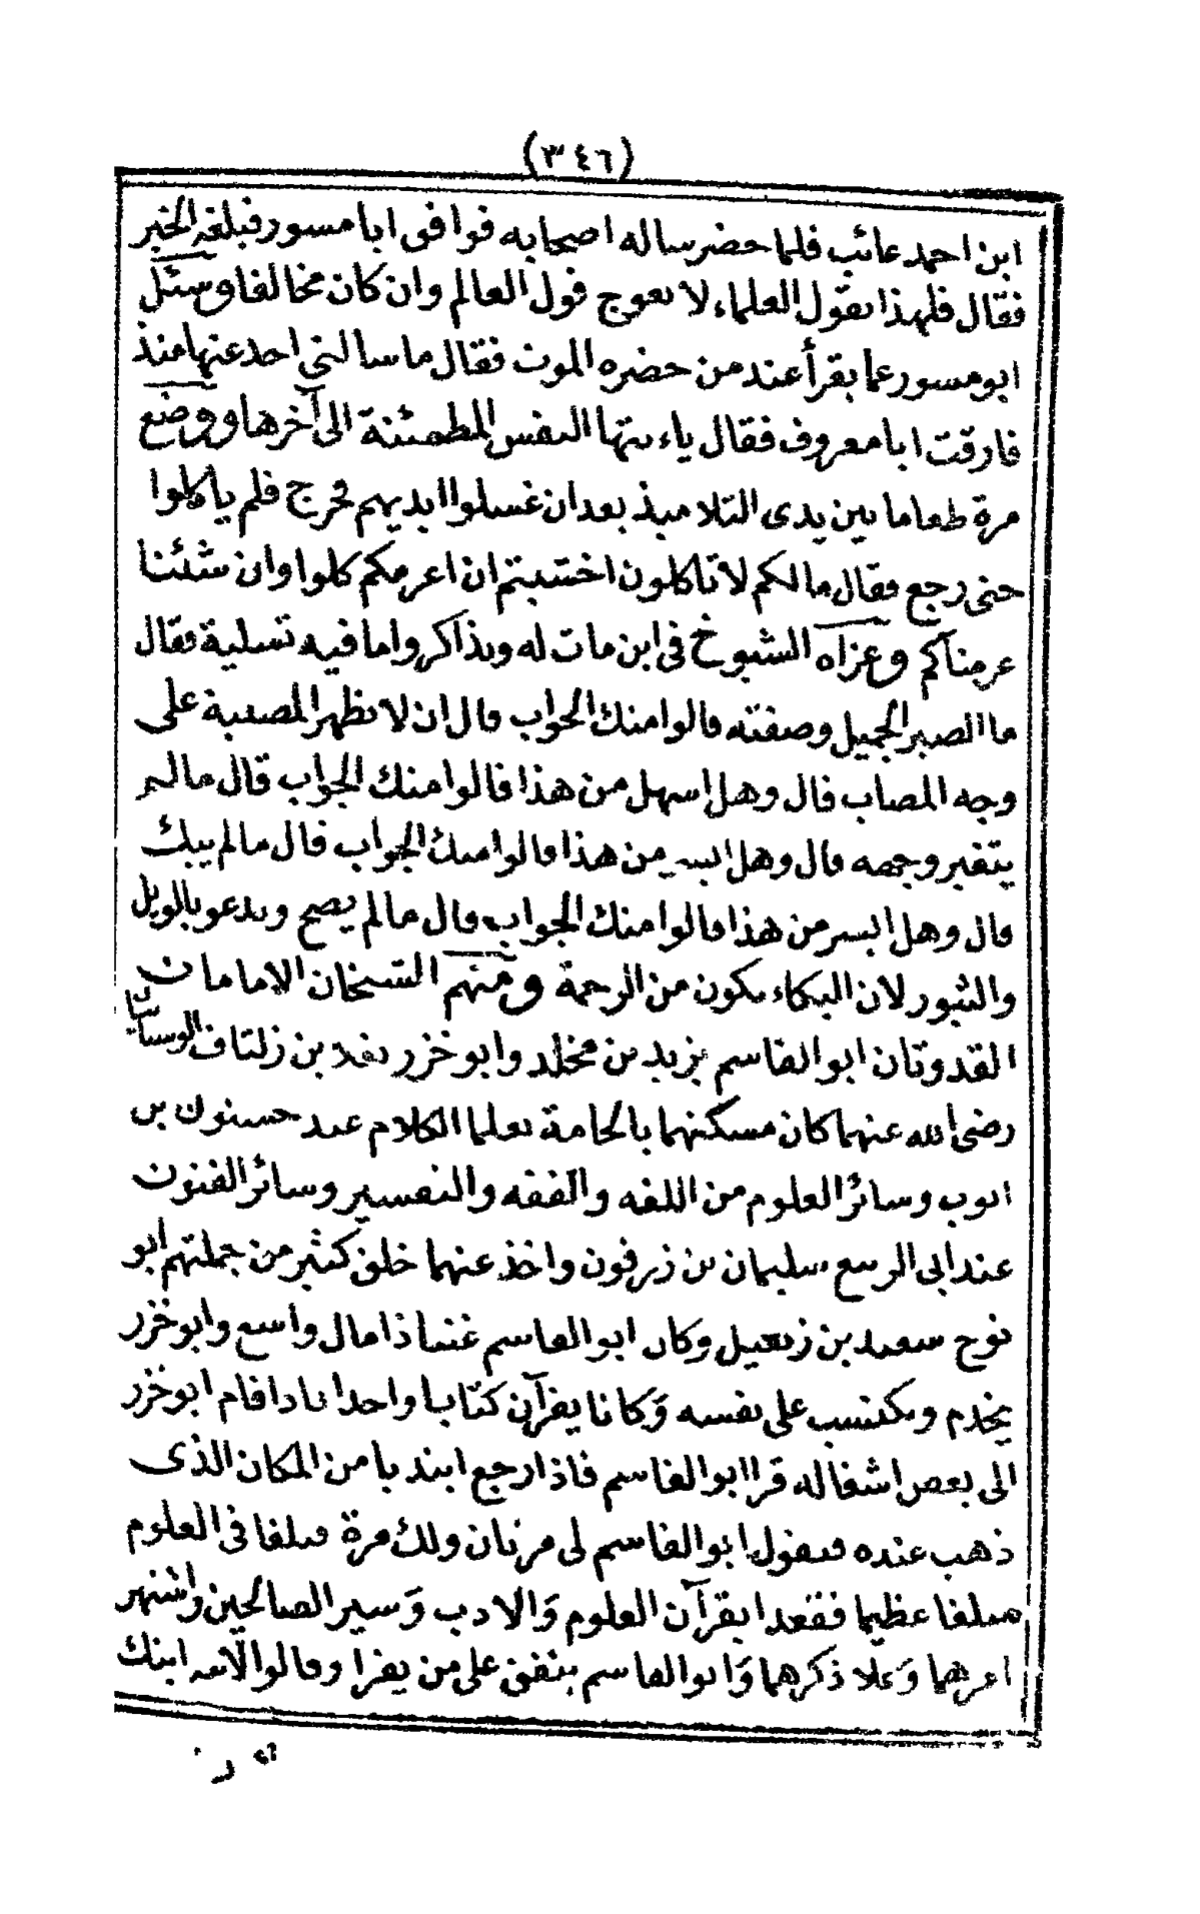 (٣٤٦)
ابن احمد عائب فلما حضر ساله اصحابه فوافق ابا مسور فبلغه الخبر
فقال فلهذا يقول العلماء لا يعوج قول العالم وان كان مخالفا وسئل
ابو مسور عما يقرأ عند من حضره الموت فقال ما سالنى احد عنها منذ
فارقت ابا معروف فقال ياءيتها النفس المطمئنة الى آخرها ووضع
مرة طعاما بين يدى التلاميذ بعد ان غسلوا ايديهم فخرج فلم ياكلوا
حتى رجع فقال مالكم لا تاكلون اخشيتم ان اغرمكم كلوا وان شئنا
غرمناكم وعزاه الشيوخ فى ابن مات له وتذاكروا ما فيه تسلية فقال
ما الصبر الجميل وصفته قالوا منك الجواب قال ان لا تظهر المصيبة على
وجه المصاب قال وهل اسهل من هذا قالوا منك الجواب قال مالم
يتغير وجهه قال وهل ايسر من هذا قالوا منك الجواب قال مالم يبك
قال وهل ايسر من هذا قالوا منك الجواب قال مالم يصح ويدعو بالويل
والثبور لان البكاء يكون من الرحمة ومنهم الشيخان الامامان
القدوتان ابو القاسم يزيد بن مخلد وابو خزر يغلا بن زلتاف الوسيانيان
رضى الله عنهما كان مسكنهما بالحامة تعلما الكلام عند حسنون بن
ايوب وسائر العلوم من اللغه والفقه والتفسير وسائر الفنون
عند ابى الربيع سليمان بن زرفون واخذ عنهما خلق كثير من جملتهم ابو
نوح سعيد بن زنغيل وكان ابو القاسم غنيا ذا مال واسع وابو خزر
يخدم ويكتسب على نفسه وكانا يقرآن كتابا واحدا فاذا قام ابو خزر
الى بعض اشغاله قرا ابو القاسم فاذا رجع ابتديا من المكان الذى
ذهب عنده فيقول ابو القاسم لى مرتان ولك مرة فبلغا فى العلوم
مبلغا عظيما فقعدا يقرآن العلوم والادب وسير الصالحين واشتهر
امرهما وعلا ذكرهما وابو القاسم ينفق على من يقرا وقالوا لابيه ابنك